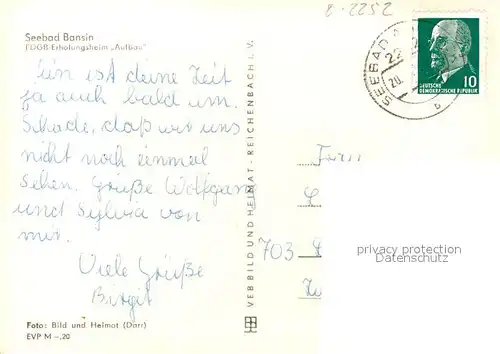 8-2252
Seebad Bansin
FDGB-Erholungsheim „Aufbau"
Nun ist deine Zeit
ja auch bald um.
Schade, daß wir uns
nicht noch einmal
sehen. Grüße Wolfgang
und Sylvia von
mir.
Viele Grüße
Birgit
Foto: Bild und Heimat (Darr)
EVP M –,20
VEB BILD UND HEIMAT - REICHENBACH I. V.
SEEBAD
10
DEUTSCHE
DEMOKRATISCHE REPUBLIK
703
privacy protection
Datenschutz